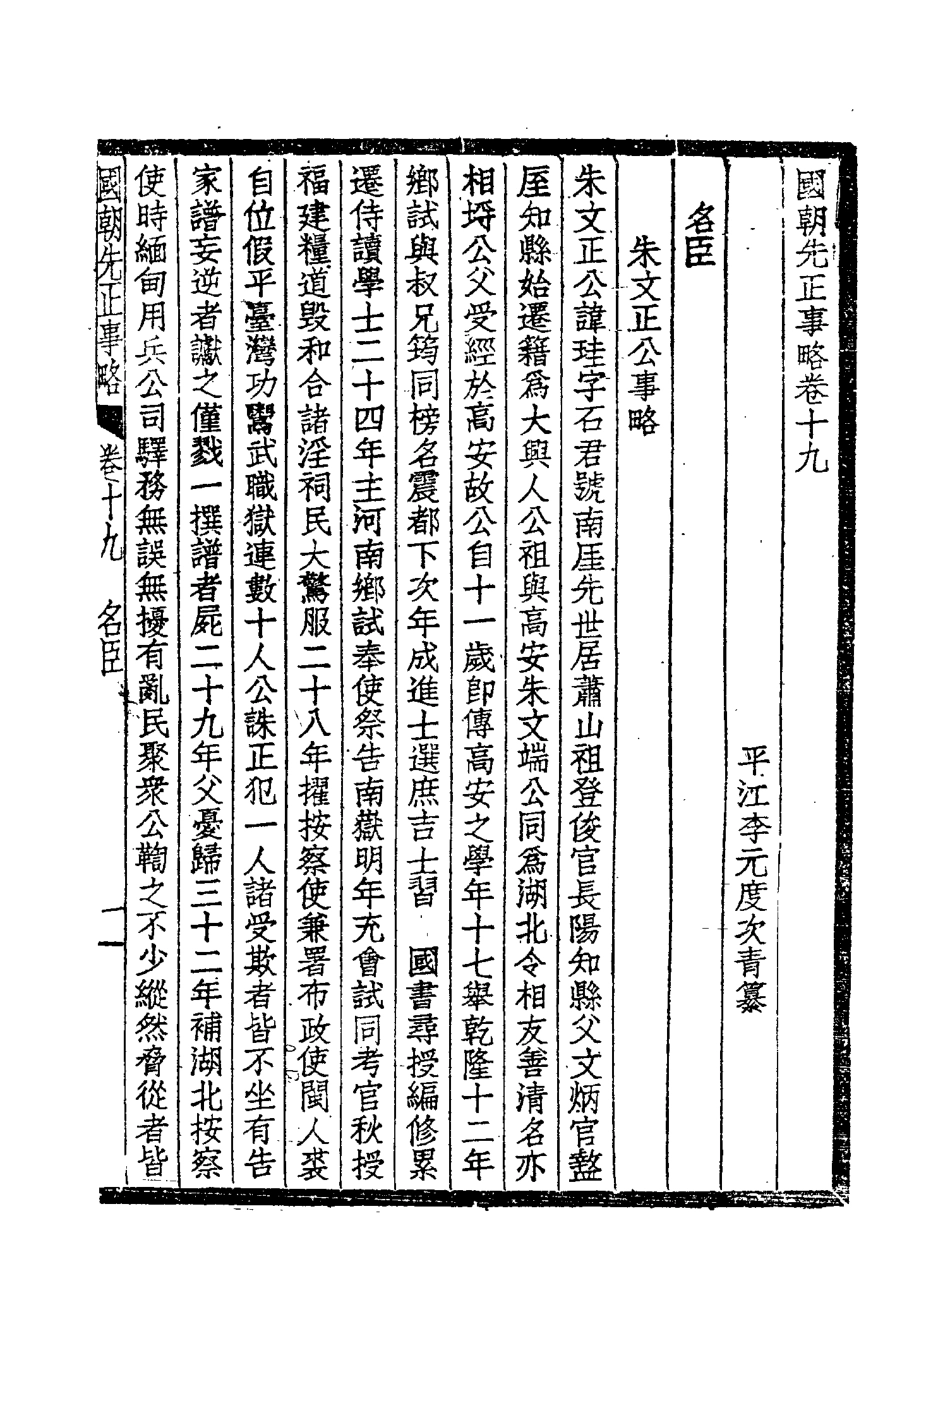 國朝先正事略卷十九
平江李元度次青纂
名臣
朱文正公事略
朱文正公諱珪字石君號南厓先世居蕭山祖登俊官長陽知縣父文炳官盩
厔知縣始遷籍爲大興人公祖與高安朱文端公同爲湖北令相友善清名亦
相埒公父受經於高安故公自十一歲卽傳高安之學年十七舉乾隆十二年
鄉試與叔兄筠同榜名震都下次年成進士選庶吉士習　國書尋授編修累
遷侍讀學士二十四年主河南鄉試奉使祭告南嶽明年充會試同考官秋授
福建糧道毀和合諸淫祠民大驚服二十八年擢按察使兼署布政使閩人裘
自位假平臺灣功鬻武職獄連數十人公誅正犯一人諸受欺者皆不坐有告
家譜妄逆者讞之僅戮一撰譜者屍二十九年父憂歸三十二年補湖北按察
使時緬甸用兵公司驛務無誤無擾有亂民聚衆公鞫之不少縱然脅從者皆
國朝先正事略　卷十九　名臣　一